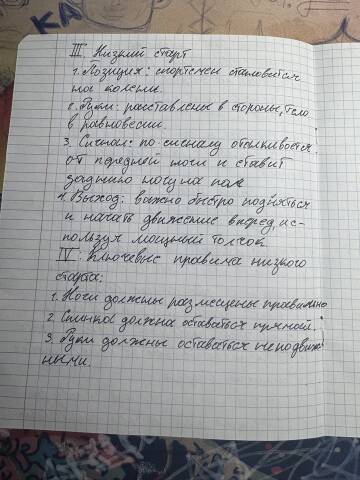 III. Низкий старт
1. Позиция: спортсмен становится
на колени.
2. Руки: расставлены в стороны, тело
в равновесии.
3. Сигнал: по сигналу отталкивается
от передней ноги и ставит
заднюю ногу на пол
4. Выход: важно быстро подняться
и начать движение вперед, ис-
пользуя мощный толчок
IV. Ключевые правила низкого
старта:
1. Ноги должны размещены правильно
2. Спинка должна оставаться прямой.
3. Руки должны оставаться неподвиж
ными.